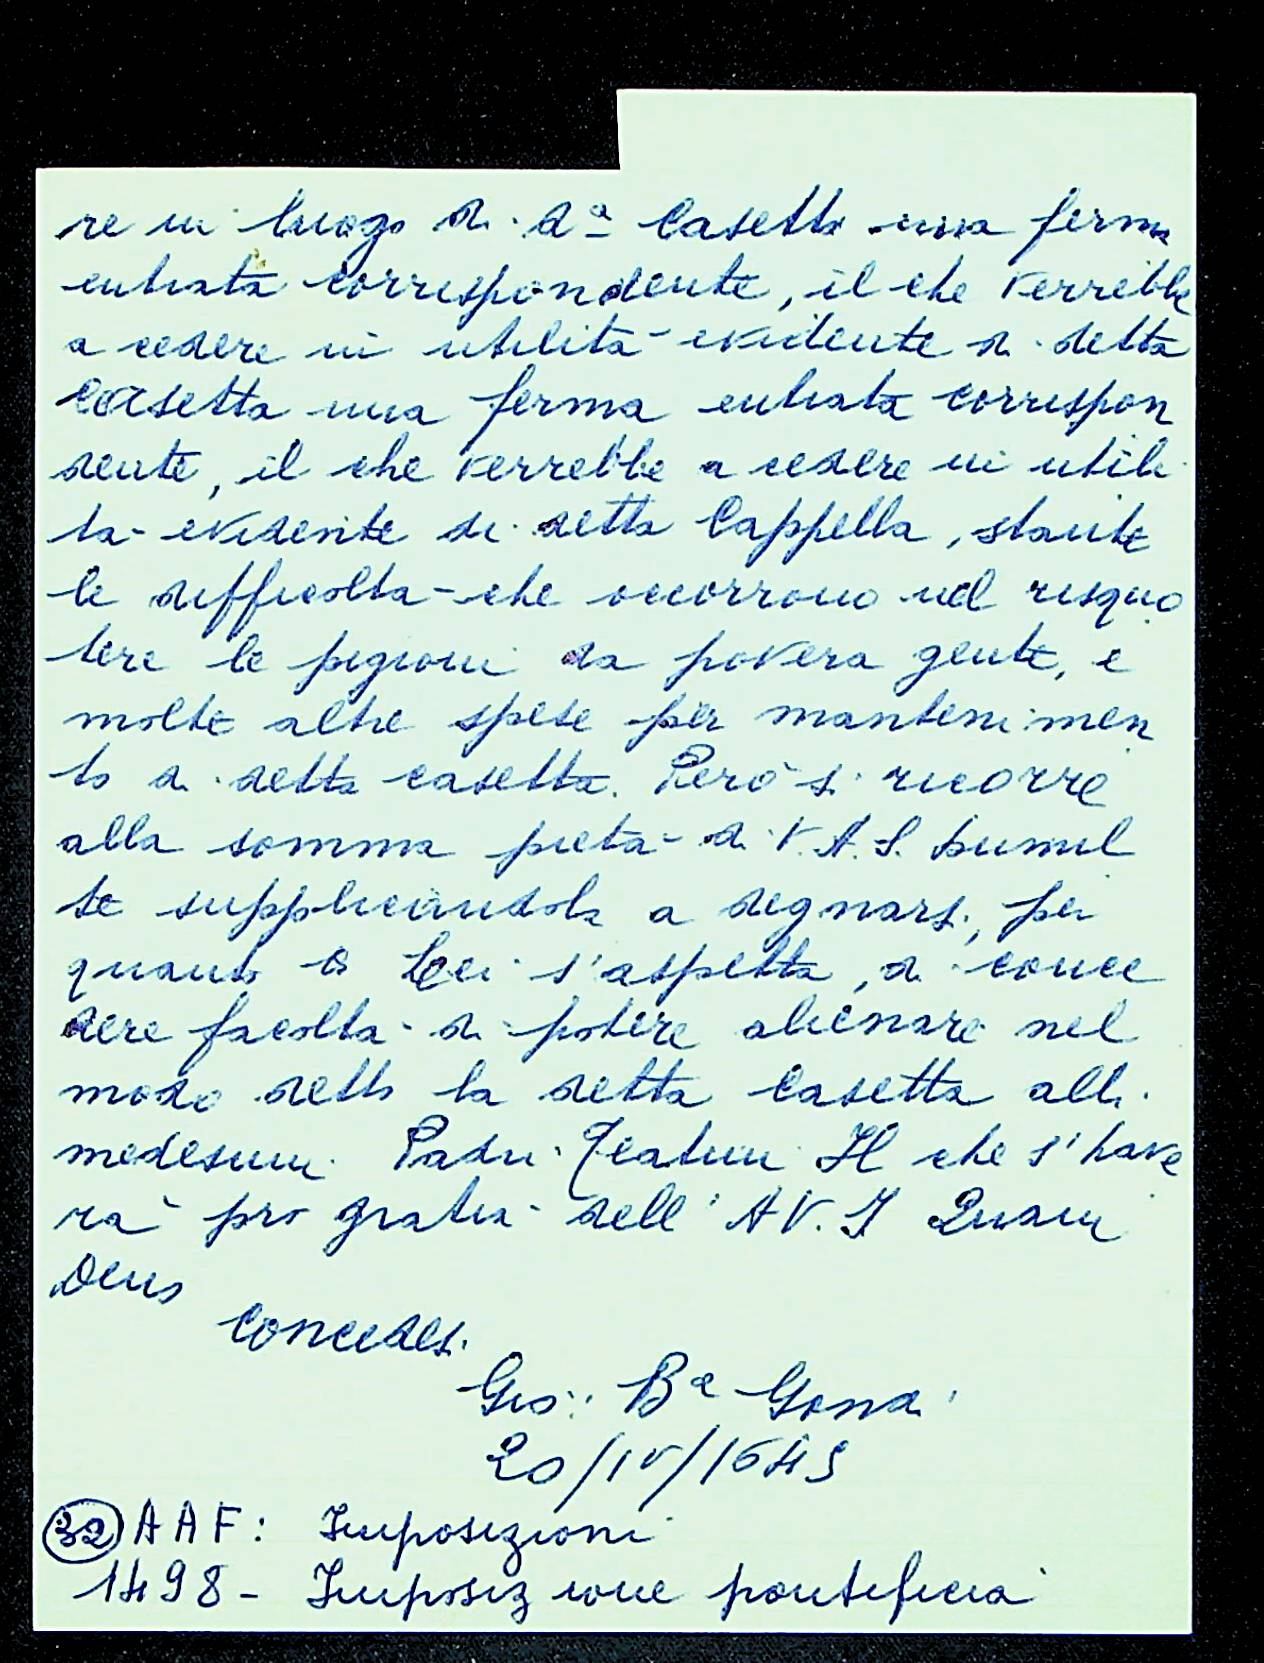 re in luogo di dª Casetta una ferma
entrata corrispondente, il che verrebbe
a cedere in utilità evidente di detta
Casetta una ferma entrata corrispon
dente, il che verrebbe a cedere in utili
tà evidente di detta Cappella, stante
le difficoltà che occorrono nel risquo
tere le pigioni da povera gente, e
molte altre spese per mantenimen
to di detta casetta. Però si ricorre
alla somma pietà di V. A. S. humil
te supplicandola a degnarsi, per
quanto a Lei s'aspetta, di conce
dere facoltà di potere alienare nel
modo detto la detta Casetta alli
medesimi Padri Teatini Il che s'have
rà pro gratia dell' A V. S Quam
Deus
Concedes.
Gio: Bª Gondi
20/IV/1645
32 AAF: Imposizioni
1498 - Imposizione pontificia